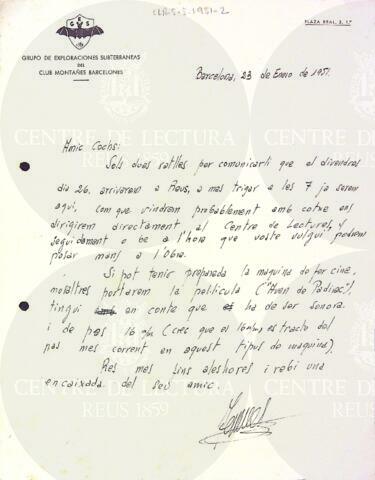 CLR-S-5-1951-2
G E S
PLAZA REAL, 3, 1º
GRUPO DE EXPLORACIONES SUBTERRANEAS
DEL
CLUB MONTAÑES BARCELONES
Barcelona, 23 de Enero de 1951.
Amic Cochs:
Sols dues ratlles per comunicarli que el divendres
dia 26. arrivarem a Reus, a mes trigar a les 7 ja serem
aqui, com que vindrem probablement amb cotxe ens
dirigirem directament al Centre de Lectura, y
seguidament o be a l'hora que voste vulgui podrem
posar mans a l'Obra.
Si pot tenir preparada la maquina de fer cine,
nosaltres portarem la pel·licula ("Aven de Padirac")
tingui en conte que ha de ser sonora.
i de pas 16 m/m (crec que el 16 m/m es tracta del
pas mes corrent en aquest tipus de maquina).
Res mes fins aleshores i rebi una
encaixada del seu amic.
CENTRE DE LECTURA
REUS 1859
CENTRE DE LECTURA
REUS 1859